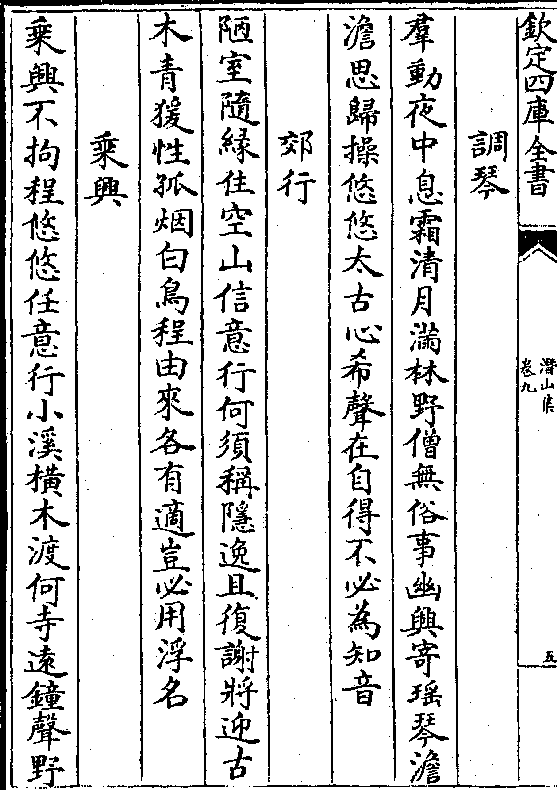 欽定四庫全書
潛山集
卷九
五
調琴
羣動夜中息霜清月滿林野僧無俗事幽興寄瑶琴澹
澹思歸操悠悠太古心希聲在自得不必為知音
郊行
陋室隨緣住空山信意行何須稱隱逸且復謝將迎古
木青猨性孤烟白鳥程由來各有適豈必用浮名
乘興
乘興不拘程悠悠任意行小溪橫木渡何寺遠鐘聲野